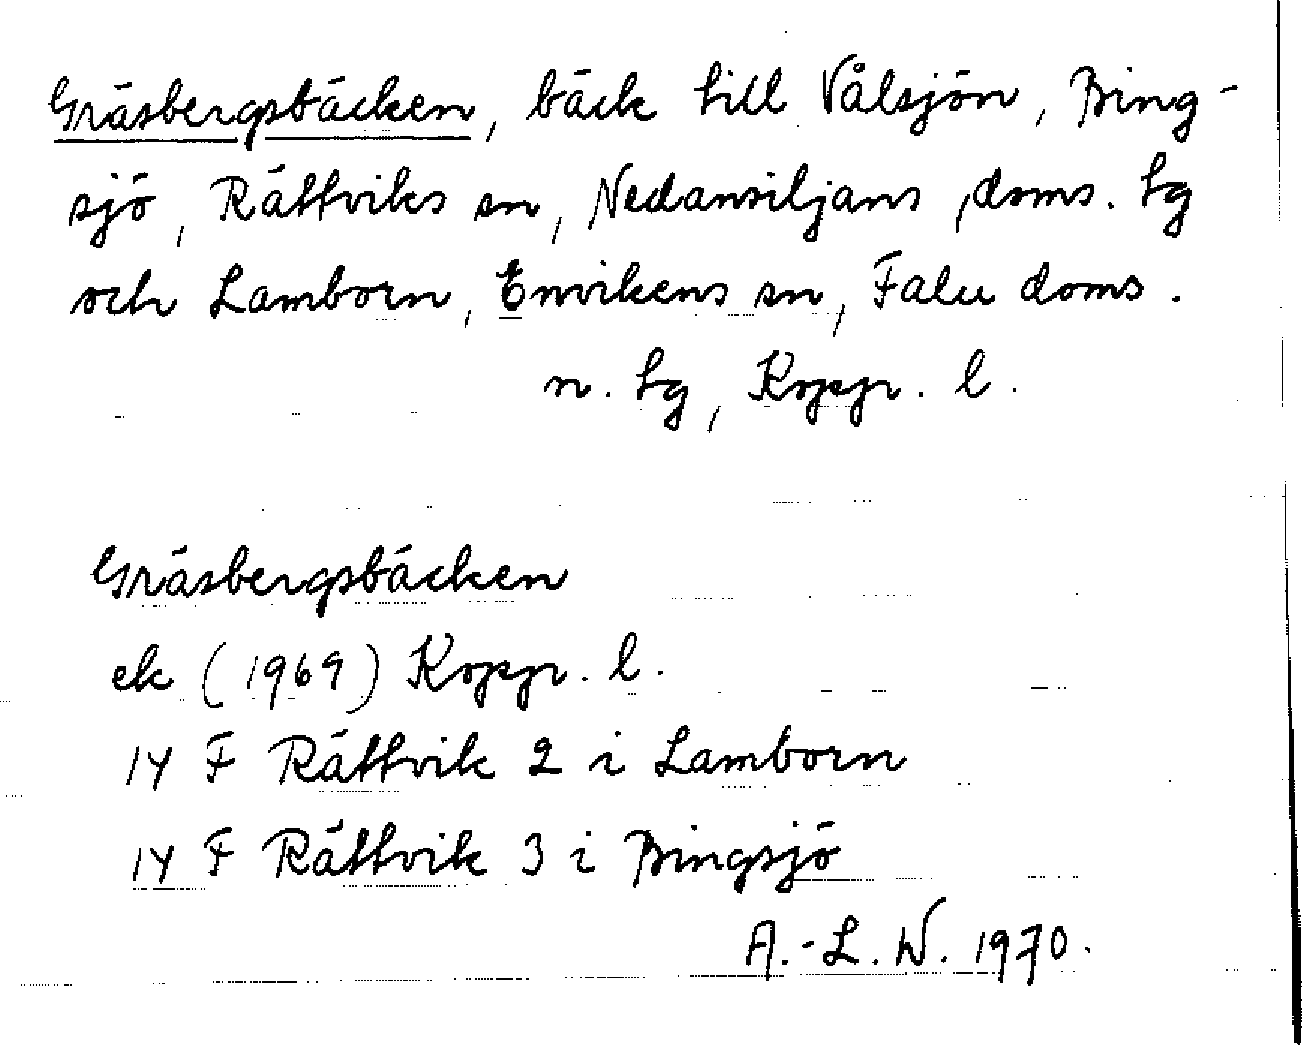 Gräsbergsbäcken, bäck till Vålsjön, Bing-
sjö, Rättviks sn, Nedansiljans doms. tg
och Lamborn, Envikens sn, Falu doms.
n. tg, Kopp. l.
Gräsbergsbäcken
ek (1969) Kopp. l.
14 F Rättvik 2 i Lamborn
14 F Rättvik 3 i Bingsjö
A.-L. W. 1970.